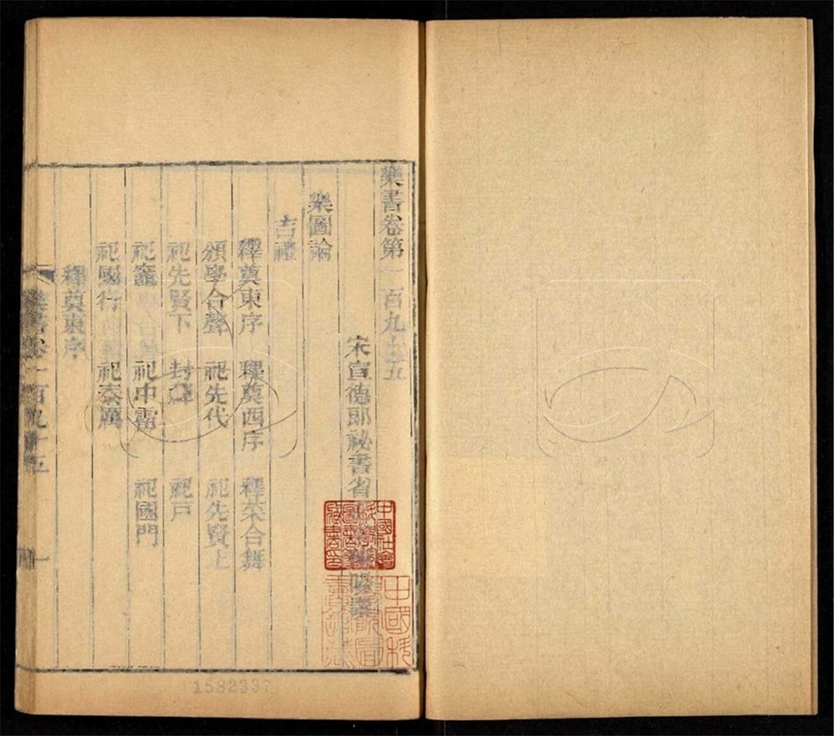 樂書卷第一百九十五
宋宣德郎祕書省
樂圖論
吉禮
釋奠東序 釋奠西序 釋菜合舞
頒學合聲 祀先代 祀先賢上
祀先賢下 祀戶
祀竈 祀中霤 祀國門
祀國行 祀泰厲
釋奠東序
樂書卷一百九十五
一
中國社會
1582337